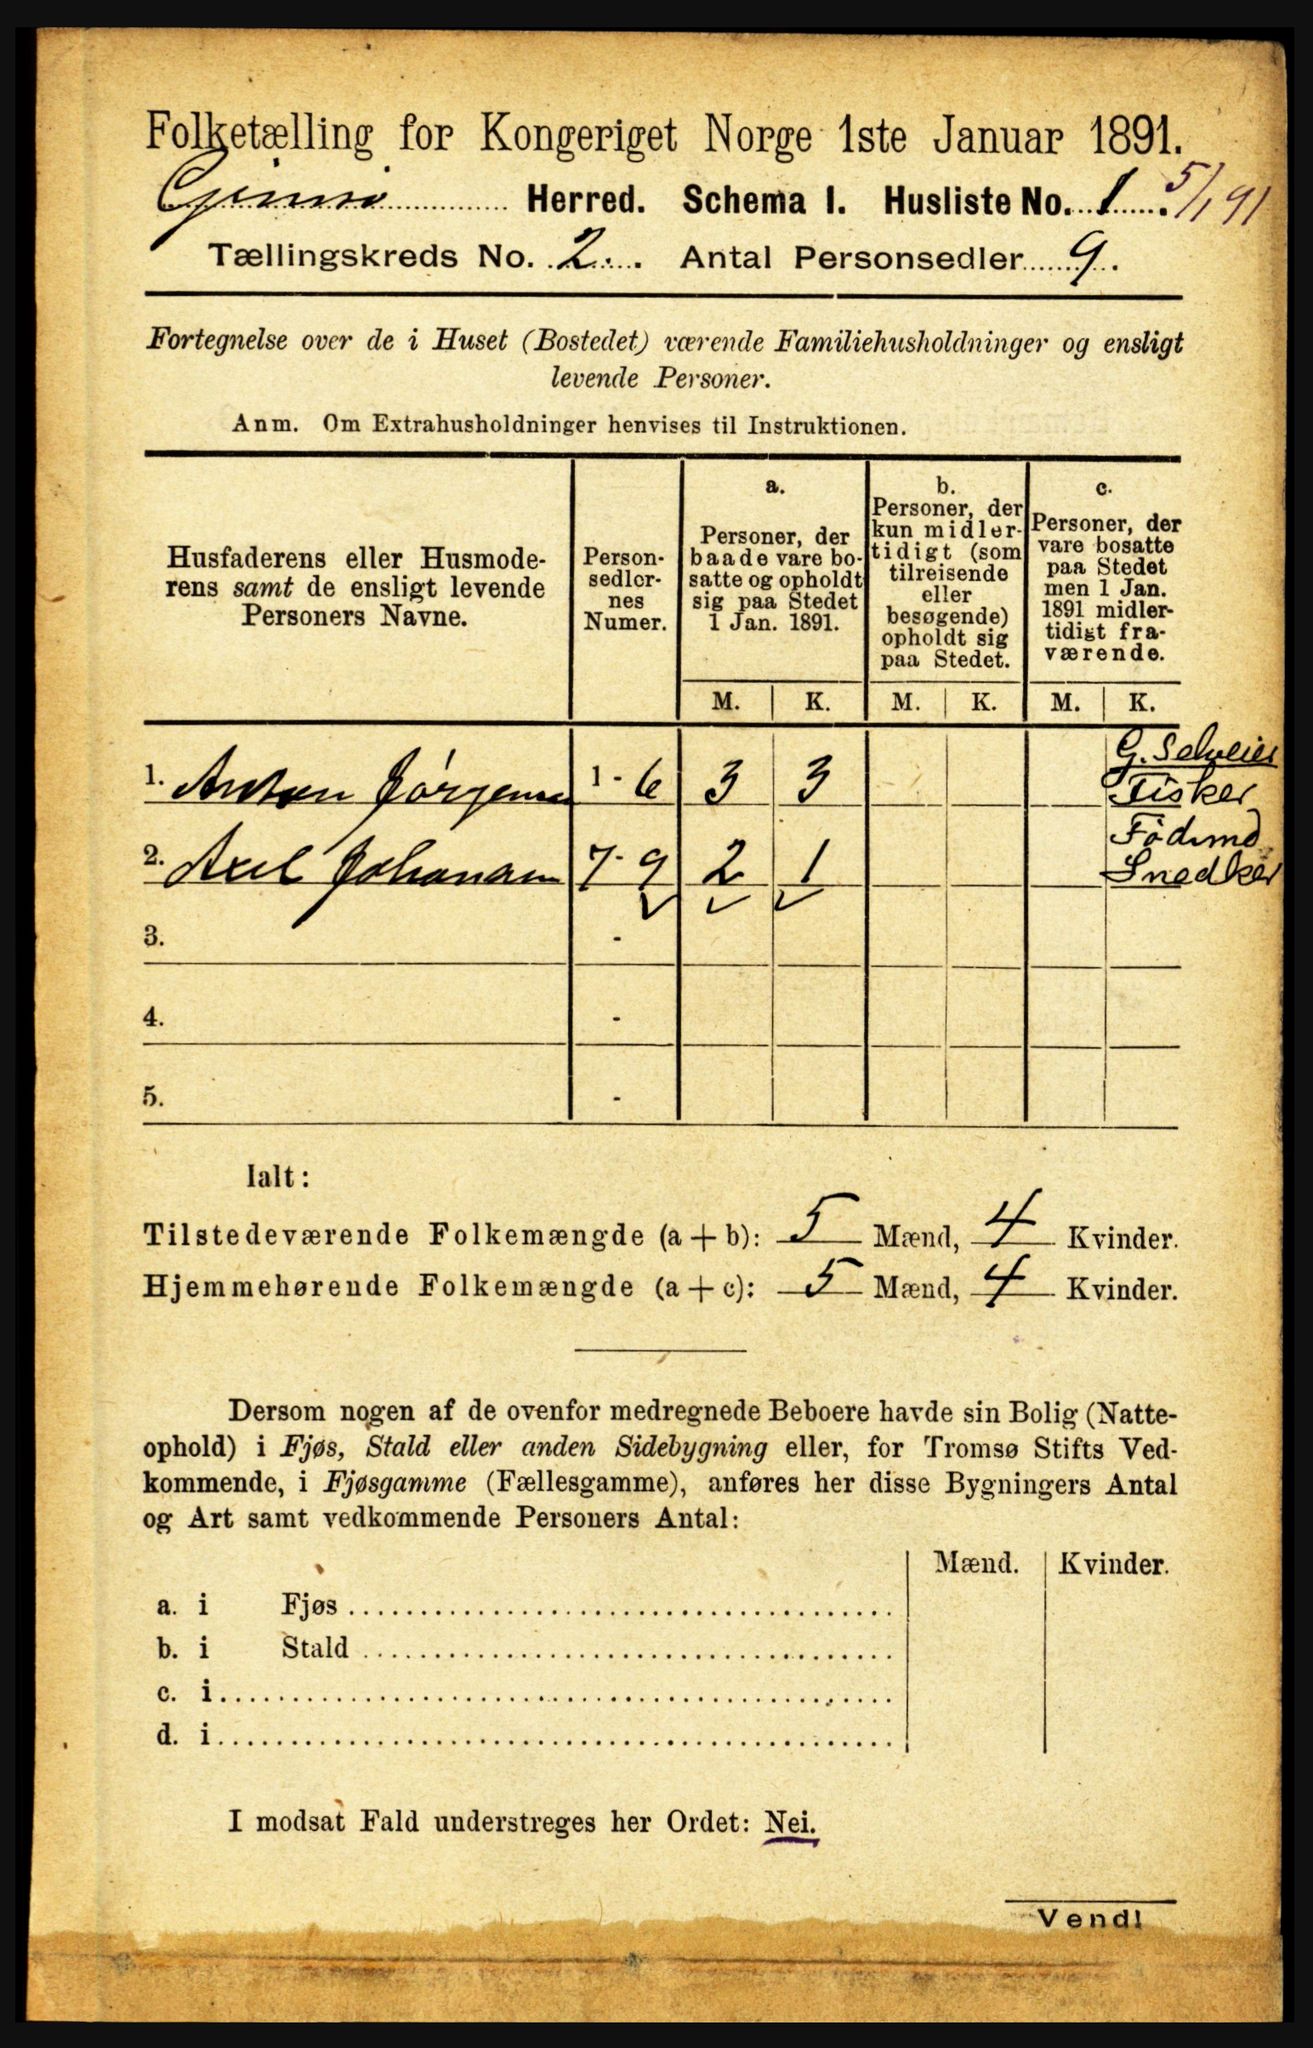 Folketælling for Kongeriget Norge 1ste Januar 1891.
Gimsø Herred. Schema I. Husliste No. 1. 5/1 91
Tællingskreds No. 2. Antal Personsedler 9.
Fortegnelse over de i Huset (Bostedet) værende Familiehusholdninger og ensligt
levende Personer.
Anm. Om Extrahusholdninger henvises til Instruktionen.
Husfaderens eller Husmode-
rens samt de ensligt levende
Personers Navne.
Person-
sedler-
nes
Numer.
a.
Personer, der
baade vare bo-
satte og opholdt
sig paa Stedet
1 Jan. 1891.
b.
Personer, der
kun midler-
tidigt (som
tilreisende
eller
besøgende)
opholdt sig
paa Stedet.
c.
Personer, der
vare bosatte
paa Stedet
men 1 Jan.
1891 midler-
tidigt fra-
værende.
M. K. M. K. M. K.
G. Selveier
1. Anton Jørgensen 1 - 6 3 3 Fisker
Föderaad
2. Axel Johansen 7 - 9 2 1 Snedker
3. -
4. -
5. -
Ialt:
Tilstedeværende Folkemængde (a + b): 5 Mænd, 4 Kvinder.
Hjemmehørende Folkemængde (a + c): 5 Mænd, 4 Kvinder.
Dersom nogen af de ovenfor medregnede Beboere havde sin Bolig (Natte-
ophold) i Fjøs, Stald eller anden Sidebygning eller, for Tromsø Stifts Ved-
kommende, i Fjøsgamme (Fællesgamme), anføres her disse Bygningers Antal
og Art samt vedkommende Personers Antal:
Mænd. Kvinder.
a. i Fjøs
b. i Stald
c. i
d. i
I modsat Fald understreges her Ordet: Nei.
Vend!